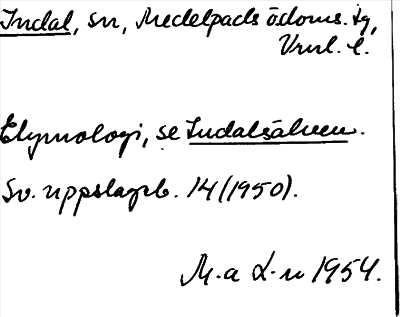 Indal, sn, Medelpads ö doms. tg,
Vnrl. l.
Etymologi, se Indalsälven.
Sv. uppslagsb. 14 (1950).
M-a L-n 1954.